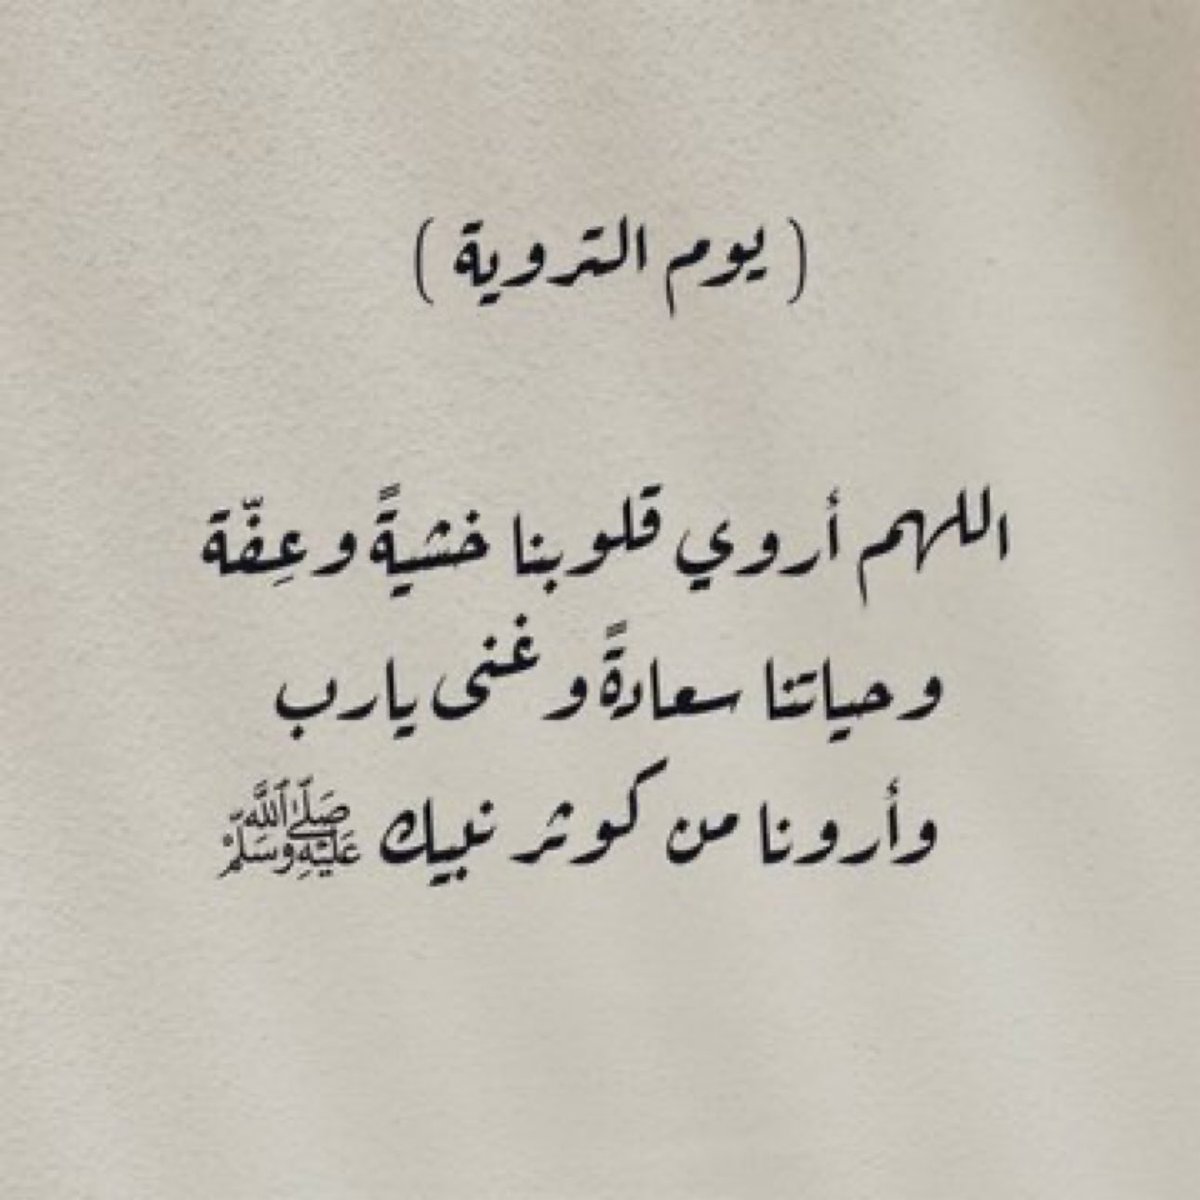 ( يوم التروية )
اللهم أروي قلوبنا خشيةً و عِفّة
و حياتنا سعادةً و غنى يارب
وأرونا من كوثر نبيك ﷺ